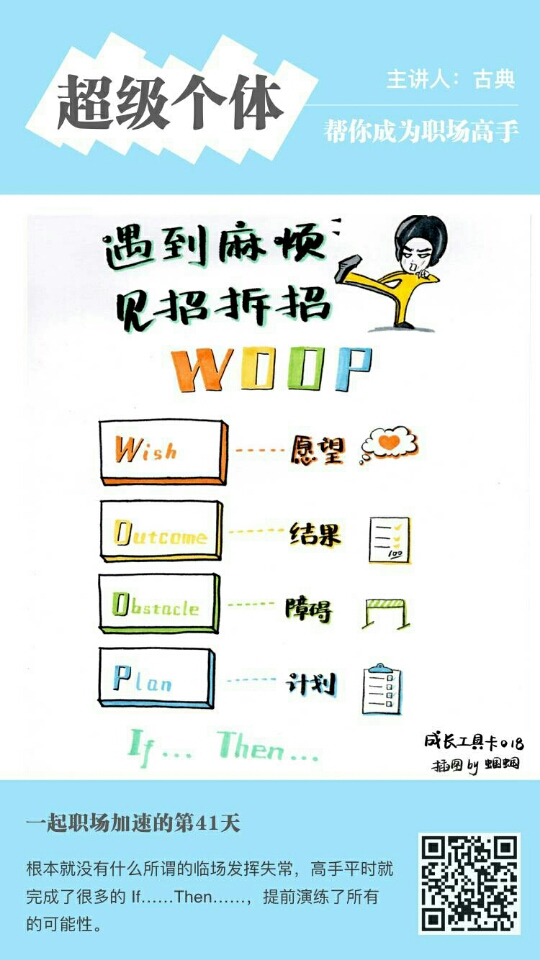 超级个体
主讲人：古典
帮你成为职场高手
遇到麻烦
见招拆招
WOOP
Wish 愿望
Outcome 结果
100
Obstacle 障碍
Plan 计划
If... Then...
成长工具卡018
插图by蝈蝈
一起职场加速的第41天
根本就没有什么所谓的临场发挥失常，高手平时就
完成了很多的 If……Then……，提前演练了所有
的可能性。